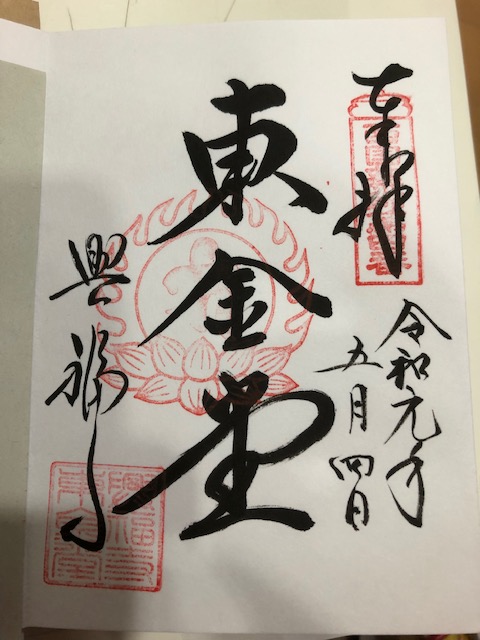 奉拝
令和元年
五月四日
東金堂
興福寺